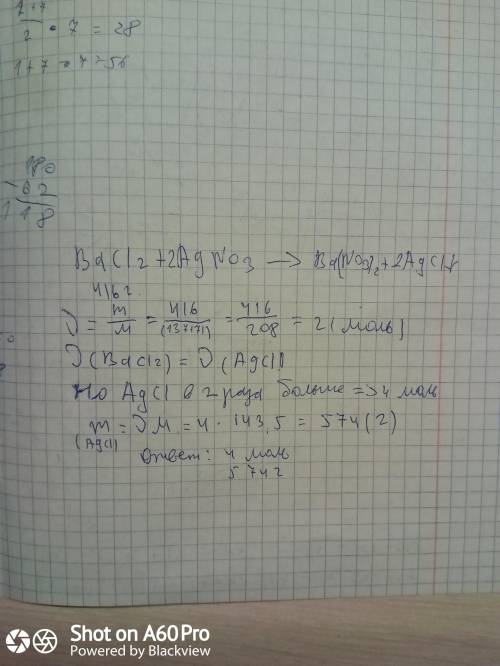 1+7
2 • 7 = 28
1+7 • 7 = 56
180
62
118
BaCl2 + 2AgNO3 → Ba(NO3)2 + 2AgCl↓
416 г.
ν = m/M = 416/(137+71) = 416/208 = 2 (моль)
ν (BaCl2) = ν (AgCl)
Но AgCl в 2 раза больше => 4 моль
m = νM = 4 · 143,5 = 574 (г)
(AgCl)
Ответ: 4 моль
574 г
Shot on A60Pro
Powered by Blackview